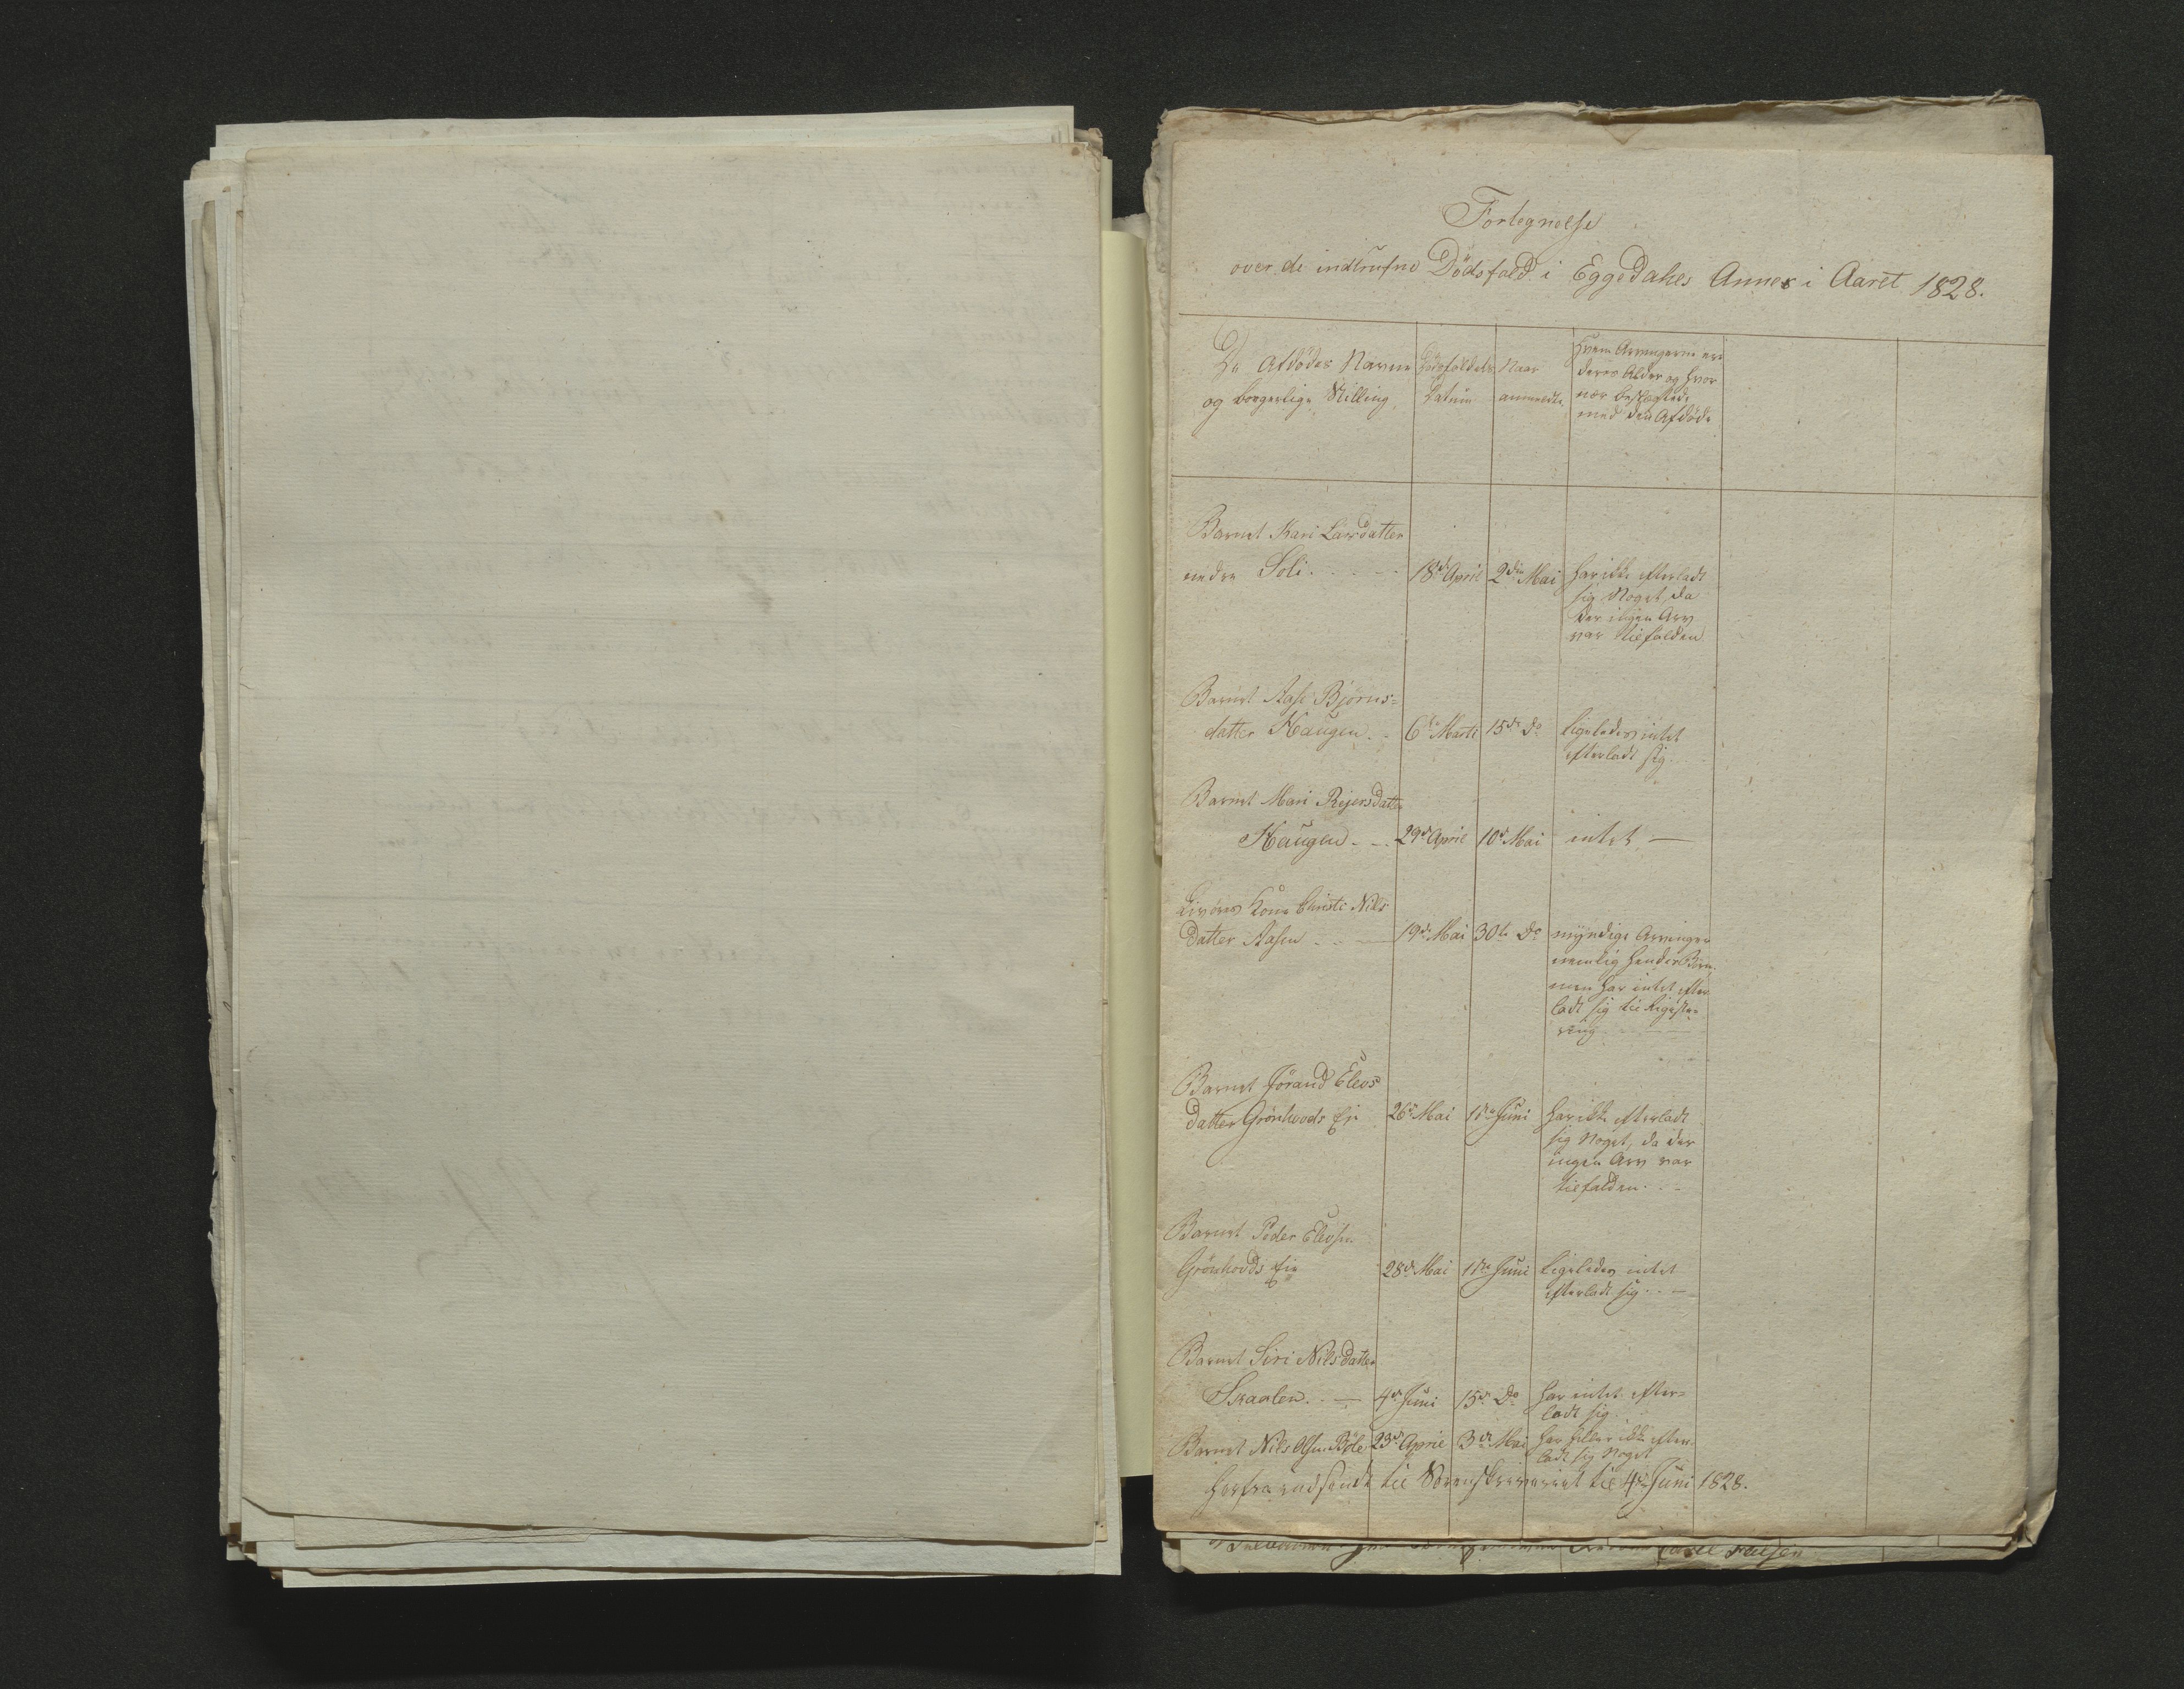 Fortegnelse
over de indtrufne Dödsfald i Eggedahls Annex i Aaret 1828.
De Afdödes Navne
og borgerlige Stilling
Dödsfaldets
Datum
Naar
anmeldte
Hvem Arvingerne ere
deres Alder og hvor
nær beslægtede
med den Afdöde
Barnet Kari Larsdatter
nedre Soli . . . . 18de April 2den Mai har ikke efterladt
sig Noget, da
der ingen Arv
var tilfalden
Barnet Aase Björns=
datter Haugen . . 6te Marts 15de Do ligeledes intet
efterladt sig.
Barnet Mari Rejersdatter
Haugen . . . 29de April 10de Mai intet —
Kone Christi Nils
datter Aasen . . . 19de Mai 30te Do myndige Arvinger
nemlig hendes Börn
men har intet efter
ladt sig til Registe-
ring
Barnet Jörand Elevs
datter Grönhovds Eje 26de Mai 1ste Juni har ikke efterladt
sig Noget, da der
ingen Arv var
tilfalden . . .
Barnet Peder Elevsen
Grönhovds Eje 28de Mai 1ste Juni Ligeledes intet
efterladt sig . . —
Barnet Siri Nilsdatter
Skaalen . . — 4de Juni 15de Do har intet efter=
ladt sig.
Barnet Nils Olsen Böle 23de April 3de Mai har heller ikke efter
ladt sig Noget
Herfra indsendt til Sorenskriveriet til 4de Juni 1828.